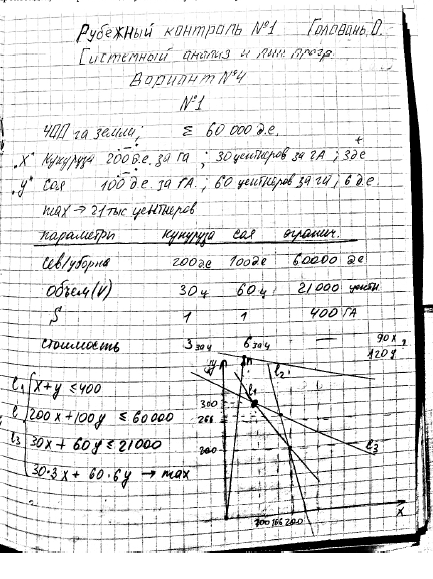 Рубежный контроль №1 Головань О.
Системный анализ и лин. прогр.
Вариант №4
№1
400 га земли; Σ 60 000 д.е.
"X" Кукуруза 200 д.е. за ГА ; 30 центнеров за ГА ; 3 д.е
"y" Соя 100 д.е. за ГА. ; 60 центнеров за га ; 6 д.е.
max → 21 тыс центнеров
параметры кукуруза соя огранич.
сев/уборка 200 д.е 100 д.е 60000 д.е
Объем (V) 30 ц 60 ц 21 000 центн
S 1 1 400 ГА
стоимость 3 за ц 6 за ц —
l₁ x + y ≤ 400
l 200x + 100y ≤ 60000
l₃ 30x + 60y ≤ 21000
30·3x + 60·6y → max
y n l₂ 90x
l₁
300
266
200
l₃
100 166 200 x